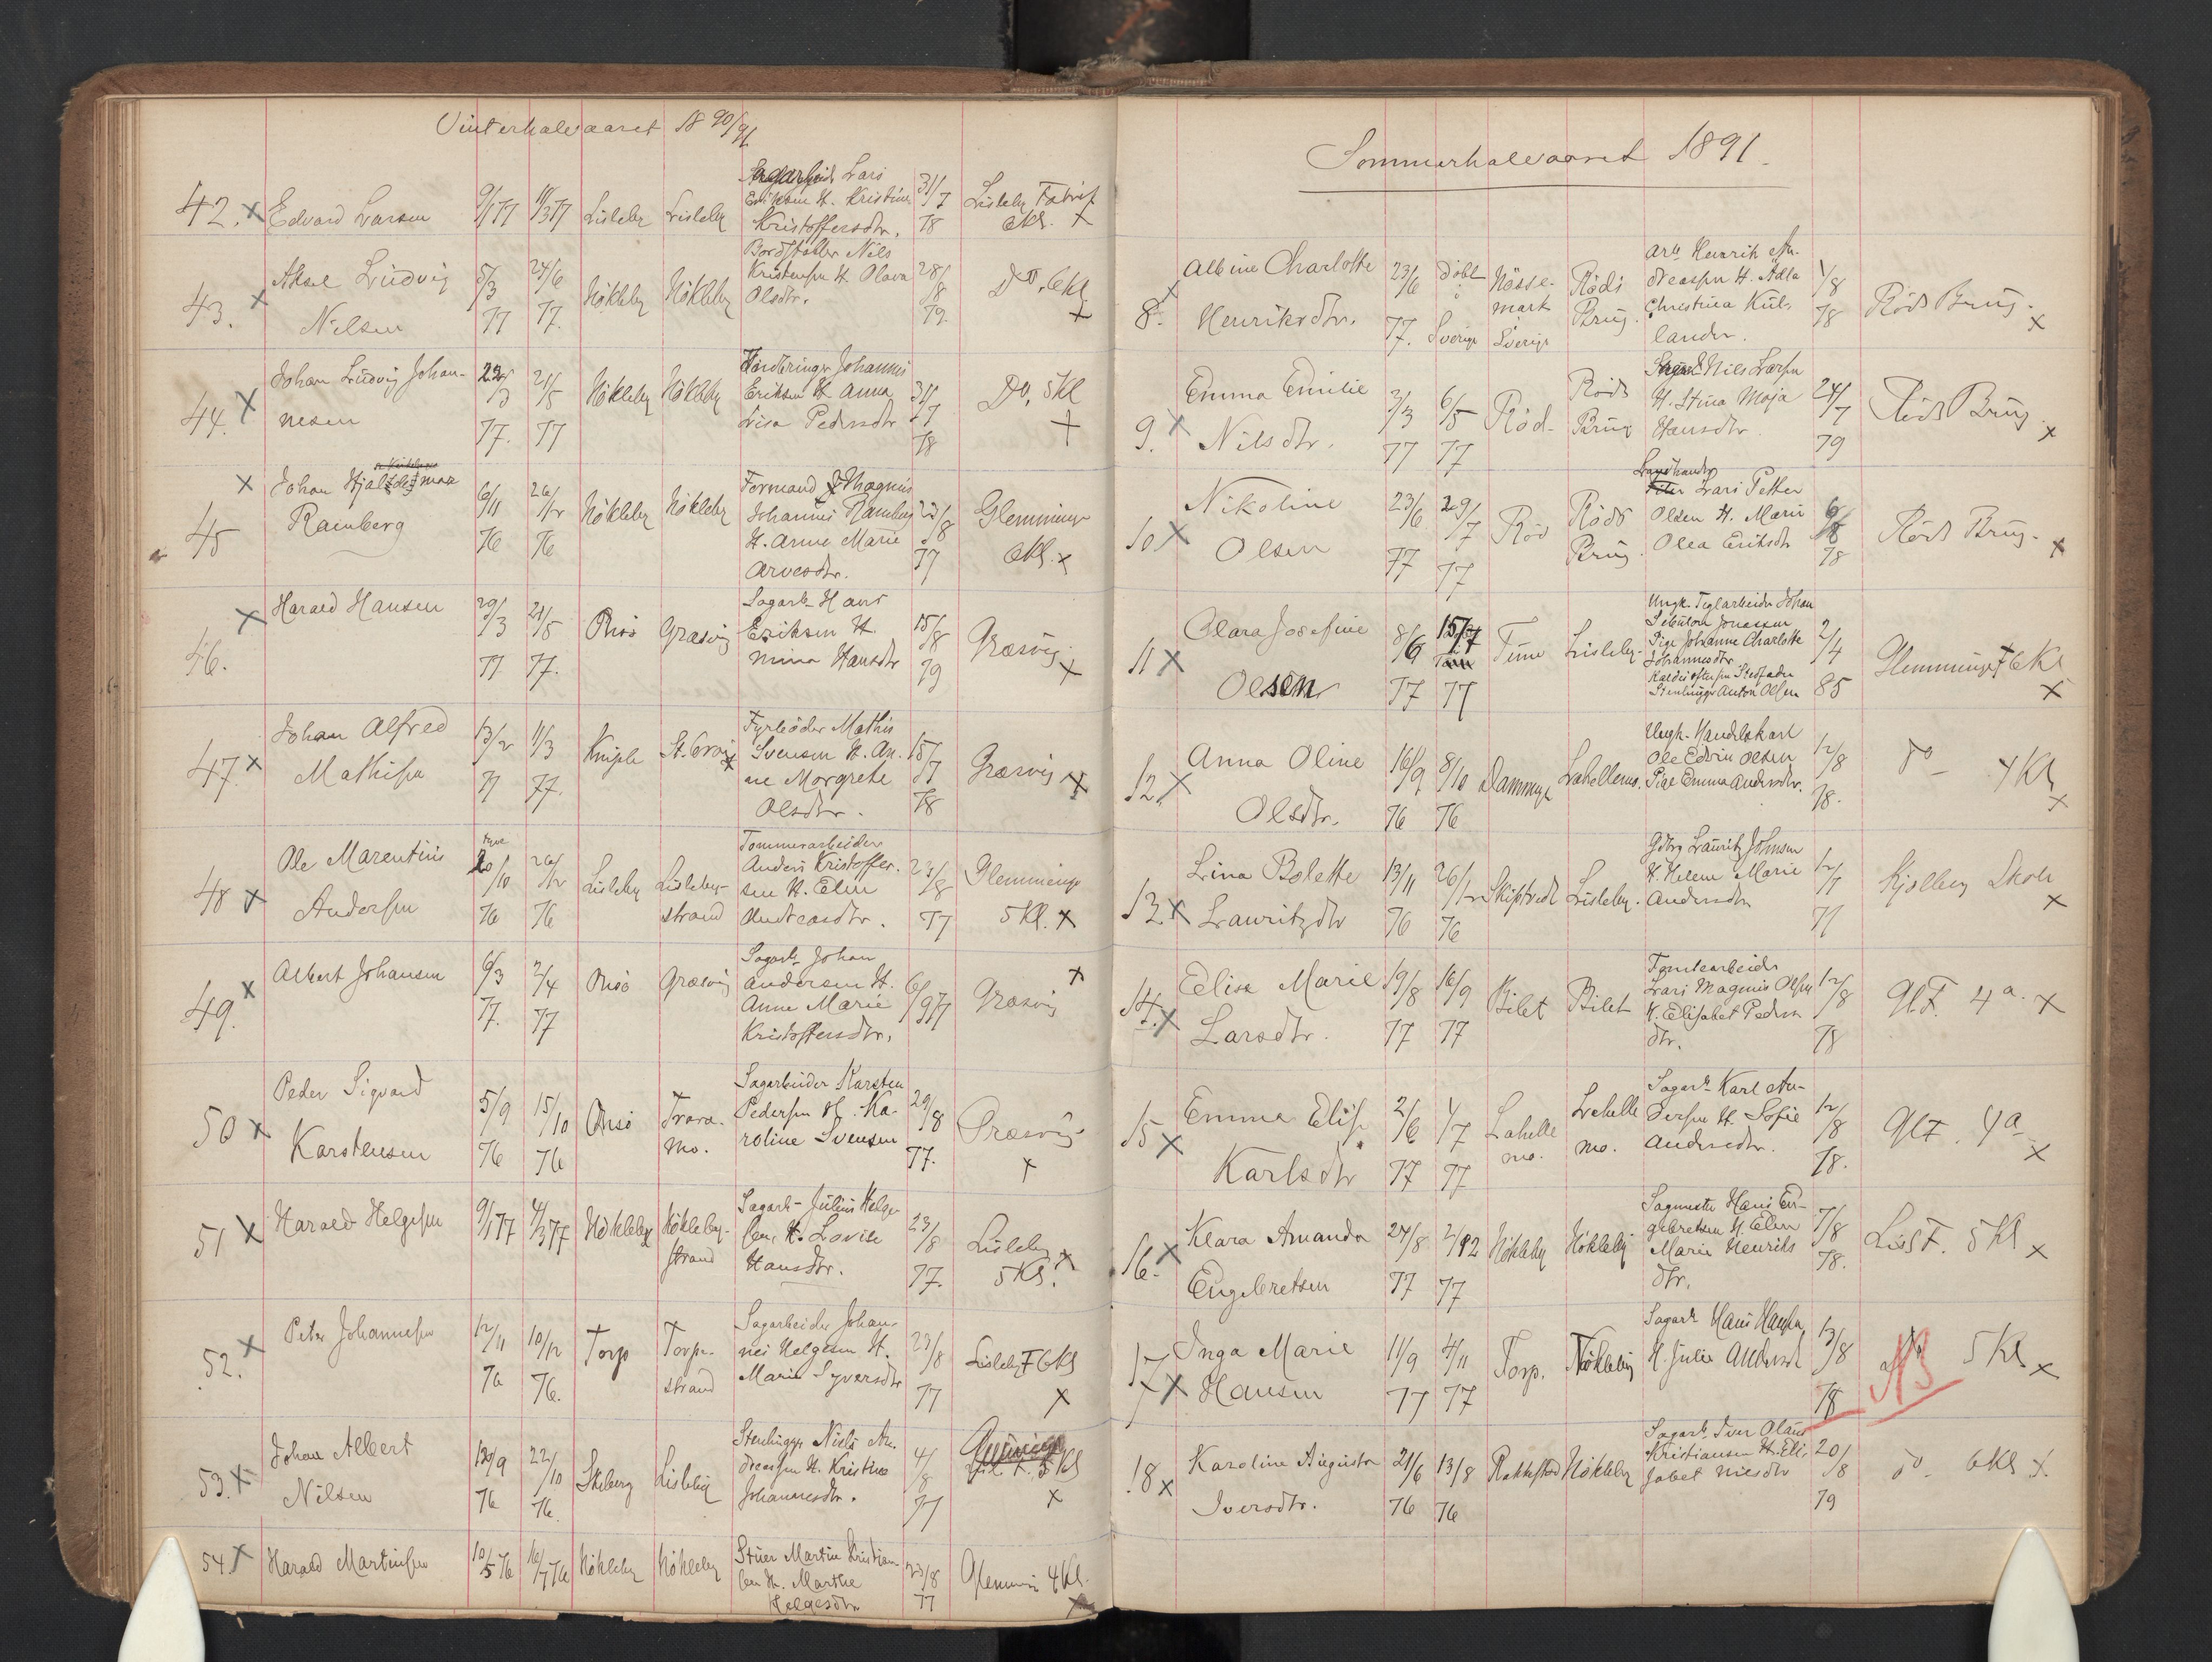 Vinterhalvaaret 1890/91
42. x Edvard Larsen 9/1 77 11/3 77 Lisleby Lisleby
Sagarbeid Lars
Eriksen H. Kristine
Kristoffersdtr.
31/7 78
Lisleby Fabrik
6Kl. x
43. x Aksel Ludvig
Nilsen
5/3 77 24/6 77. Nökleby Nökleby
Bordstabler Nils
Kristensen H. Olava
Olsdtr.
28/8 79.
Do, 6Kl
x
44. x Johan Ludvig Johan-
nesen
77. 21/5 77 Nökleby Nökleby
Johannes
Eriksen H Anna
Lisa Pedersdtr
31/7 78
Do, 5Kl
x
45 x Johan Hjalmar
Ramberg
6/11 76 26/12 76 Nökleby Nökleby
Formand Magnus
Johannes Ramberg
H. Anne Marie
Arvesdtr.
23/8 77
Glemminge
6Kl. x
46. x Harald Hansen
29/3 77 21/5 77. Onsö Græsvig
Sagarb. Hans
Eriksen H.
Mina Hansdtr
15/8 79
Græsvig
x
47. x Johan Alfred
Mathisen
13/2 77 11/3 77. Kniple
Fyrböder Mathis
Svensen H. An-
ne Margrete
Olsdtr.
15/7 78
Græsvig x
48 x Ole Marentius
Andersen
tyve
20/10 76 26/12 76 Lisleby Lisleby-
strand
Tommerarbeider
Anders Kristoffer-
sen H. Elen
Andreasdtr.
23/8 77
Glemminge
5Kl. x
49. x Albert Johansen
6/3 77. 2/4 77 Onsö Græsvig
Sagarb. Johan
Andersen H.
Anne Marie
Kristoffersdtr.
6/9 77
Græsvig x
50 x Peder Sigvard
Karstensen
5/9 76 15/10 76 Onsö Trara-
mo.
Sagarbeider Karsten
Pedersen H. Ka-
roline Svensen
29/8 77.
Græsvig
x
51 x Harald Helgesen
9/1 77 4/3 77 Nökleby Nökleby-
strand
Sagarb- Julius Helge-
sen H. Lovise
Hansdtr.
23/8 77.
Lisleby x
5Kl.
52. x Peter Johannesen
12/11 76 10/12 76. Torp Torpe-
strand
Sagarbeider Johan-
nes Helgesen H.
Marie Syversdtr
23/8 77
Lisleby F 6Kl
x
53. x Johan Albert
Nilsen
76 22/10 76. Skiberg Lisleby
Stenhugger Niels An-
dreassen H. Kristine
Johannesdtr.
4/8 77
Lisl. F. 5Kl
x
54. x Harald Martinsen
10/5 76 16/7 76 Nökleby Nökleby
Stuer Martin Kristian-
sen H. Marthe
Helgesdtr
23/8 77
Glemming 4Kl.
x
Sommerhalvaaret 1891.
8. x Albine Charlotte
Henriksdtr.
23/6 77. döbt
i
Sverige
Nösse-
mark
Sverige
Röds
Brug.
Arb. Henrik An-
dreassen H. Adla
Christina Kül-
lander.
1/8 78
Röds Brug.
x
9. x Emma Emilie
Nilsdtr.
3/3 77 6/5 77 Röd- Röds
Brug
Nils Larsen
H. Stina Maja
Hansdtr
24/7 79
Röds Brug.
x
10 x Nikoline
Olsen
23/6 77 29/7 77 Röd Röds
Brug.
Landhandr
Lars Petter
Olsen H. Marie
Olea Eriksdtr
78
Röds Brug.
x
11 x Clara Josefine
Olsen
8/6 77 15/7 77 Tune Lisleby-
Ungk. Teglarbeider Johan
Jonassen
Pige Johanne Charlotte
Johannesdtr
Kaldes efter sin Stedfader
Stenhugger Anton Olsen
2/4 85
Glemminge F 6Kl
x
12. x Anna Oline
Olsdtr.
16/9 76 8/10 76 Dammyr Lahellemo.
Ungk. Handelskarl
Ole Edvin Olsen
Pige Emma Andersdtr.
12/8 78.
do- 4Kl
x
13 x Lina Bolette
Lauritzdtr
13/11 76 26/12 76 Skiptvedt Lisleby.
Gdbr Lauritz Johnsen
H. Helene Marie
Andersdtr
12/7 77
Kjölberg Skole
x
14. x Elise Marie
Larsdtr.
19/8 77 16/9 77 Bilet Bilet
Tomtearbeider
Lars Magnus Olsen
H. Elisabet Peders-
dtr.
12/8 78
Gl.F. 4a. x
15 x Emma Elise
Karlsdtr
2/6 77 1/7 77 Lahelle
mo. Lahelle
mo.
Sagarb. Karl An-
dersen H. Sofie
Andersdtr.
12/8 78.
Gl F. 4a
x
16. x Klara Amanda
Engebretsen
24/8 77 2/12 77 Nökleby Nökleby
Sagmester Hans En-
gebretsen H. Elen
Marie Henriks
dtr.
7/8 78.
Lisl F. 5Kl x
17 x Inga Marie
Hansen
11/9 77 4/11 77 Torp. Nökleby
Sagarb Hans Hansen
H. Julie Andersd
13/8 78
NB 5Kl x
18 x Karoline Augusta
Iversdtr.
21/6 76 13/8 76 Rakkestad Nökleby
Sagarb. Iver Olaus
Kristiansen H. Eli-
sabet Nilsdtr
20/8 79
do- 6Kl x